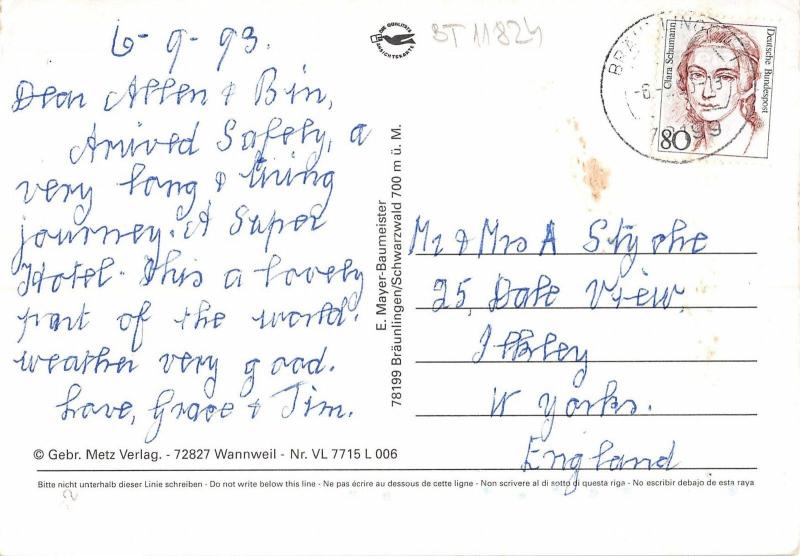 6-9-93.
BT 11824
Dear Allen & Bin,
Arrived Safely, a
very long & tiring
journey. A Super
Hotel. This a lovely
part of the world.
weather very good.
Love, Grace & Jim.
© Gebr. Metz Verlag. - 72827 Wannweil - Nr. VL 7715 L 006
Bitte nicht unterhalb dieser Linie schreiben - Do not write below this line - Ne pas écrire au dessous de cette ligne - Non scrivere al di sotto di questa riga - No escribir debajo de esta raya
E. Mayer-Baumeister
78199 Bräunlingen/Schwarzwald 700 m ü. M.
DIE QUALITÄTS
ANSICHTSKARTE
Clara Schumann
Deutsche Bundespost
80
78199
Mr & Mrs A Styche
25, Dale View,
W Yorks.
England